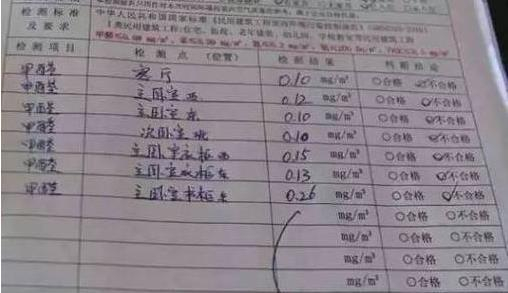 检测标准 中华人民共和国国家标准《民用建筑工程室内环境
及要求 Ⅰ类民用建筑工程:住宅、医院、老年建筑、幼儿园、学校教室等民用建筑工程
检测项目 检测点(位置) 检测结果 判断结论
甲醛 客厅 0.10 mg/m³ ○合格 ☑不合格
甲醛 主卧室西 0.12 mg/m³ ○合格 ☑不合格
甲醛 主卧室东 0.10 mg/m³ ○合格 ☑不合格
甲醛 次卧室北 0.10 mg/m³ ○合格 ☑不合格
甲醛 主卧室衣柜西 0.15 mg/m³ ○合格 ☑不合格
甲醛 主卧室衣柜东 0.13 mg/m³ ○合格 ☑不合格
甲醛 主卧室书柜东 0.26 mg/m³ ○合格 ☑不合格
mg/m³ ○合格 ○不合格
mg/m³ ○合格 ○不合格
mg/m³ ○合格 ○不合格
mg/m³ ○合格 ○不合格